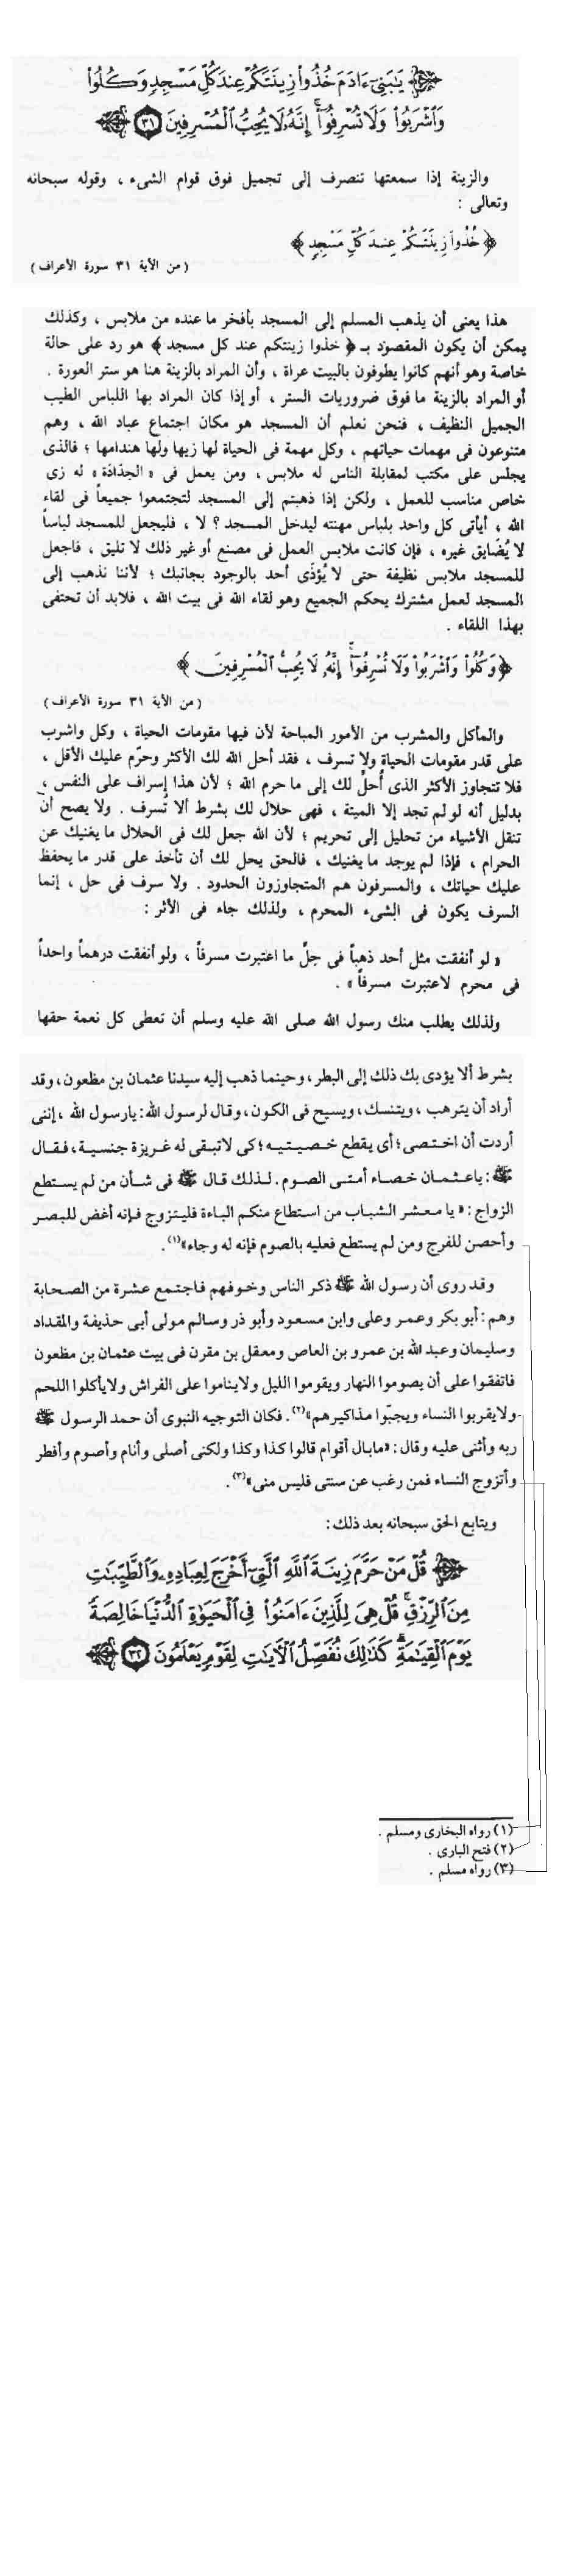 يَٰبَنِىٓ ءَادَمَ خُذُوا۟ زِينَتَكُمْ عِندَ كُلِّ مَسْجِدٍ وَكُلُوا۟
وَٱشْرَبُوا۟ وَلَا تُسْرِفُوٓا۟ ۚ إِنَّهُۥ لَا يُحِبُّ ٱلْمُسْرِفِينَ ٣١
والزينة إذا سمعتها تنصرف إلى تجميل فوق قوام الشىء ، وقوله سبحانه
وتعالى :
﴿ خُذُوا۟ زِينَتَكُمْ عِندَ كُلِّ مَسْجِدٍ ﴾
( من الآية ٣١ سورة الأعراف )
هذا يعنى أن يذهب المسلم إلى المسجد بأفخر ما عنده من ملابس ، وكذلك
يمكن أن يكون المقصود بـ ﴿ خذوا زينتكم عند كل مسجد ﴾ هو رد على حالة
خاصة وهو أنهم كانوا يطوفون بالبيت عراة ، وأن المراد بالزينة هنا هو ستر العورة .
أو المراد بالزينة ما فوق ضروريات الستر ، أو إذا كان المراد بها اللباس الطيب
الجميل النظيف ، فنحن نعلم أن المسجد هو مكان اجتماع عباد الله ، وهم
متنوعون فى مهمات حياتهم ، وكل مهمة فى الحياة لها زيها ولها هندامها ؛ فالذى
يجلس على مكتب لمقابلة الناس له ملابس ، ومن يعمل فى « الحِدَادَة » له زى
خاص مناسب للعمل ، ولكن إذا ذهبتم إلى المسجد لتجتمعوا جميعاً فى لقاء
الله ، أيأتى كل واحد بلباس مهنته ليدخل المسجد ؟ لا ، فليجعل للمسجد لباساً
لا يُضَايق غيره ، فإن كانت ملابس العمل فى مصنع أو غير ذلك لا تليق ، فاجعل
للمسجد ملابس نظيفة حتى لا يُؤذَى أحد بالوجود بجانبك ؛ لأننا نذهب إلى
المسجد لعمل مشترك يحكم الجميع وهو لقاء الله فى بيت الله ، فلابد أن تحتفى
بهذا اللقاء .
﴿ وَكُلُوا۟ وَٱشْرَبُوا۟ وَلَا تُسْرِفُوٓا۟ ۚ إِنَّهُۥ لَا يُحِبُّ ٱلْمُسْرِفِينَ ﴾
( من الآية ٣١ سورة الأعراف )
والمأكل والمشرب من الأمور المباحة لأن فيها مقومات الحياة ، وكل واشرب
على قدر مقومات الحياة ولا تسرف ، فقد أحل الله لك الأكثر وحرّم عليك الأقل ،
فلا تتجاوز الأكثر الذى أُحلَّ لك إلى ما حرم الله ؛ لأن هذا إسراف على النفس ،
بدليل أنه لو لم تجد إلا الميتة ، فهى حلال لك بشرط ألا تُسرف . ولا يصح أن
تنقل الأشياء من تحليل إلى تحريم ؛ لأن الله جعل لك فى الحلال ما يغنيك عن
الحرام ، فإذا لم يوجد ما يغنيك ، فالحق يحل لك أن تأخذ على قدر ما يحفظ
عليك حياتك ، والمسرفون هم المتجاوزون الحدود . ولا سرف فى حل ، إنما
السرف يكون فى الشىء المحرم ، ولذلك جاء فى الأثر :
« لو أنفقت مثل أحد ذهباً فى حِلٍّ ما اعتبرت مسرفاً ، ولو أنفقت درهماً واحداً
فى محرم لاعتبرت مسرفاً » .
ولذلك يطلب منك رسول الله صلى الله عليه وسلم أن تعطى كل نعمة حقها
بشرط ألا يؤدى بك ذلك إلى البطر ، وحينما ذهب إليه سيدنا عثمان بن مظعون ، وقد
أراد أن يترهب ، ويتنسك ، ويسيح فى الكون ، وقال لرسول الله : يارسول الله ، إننى
أردت أن اختصى ؛ أى يقطع خصيتيه ؛ كى لا تبقى له غريزة جنسية ، فقال
ﷺ : ياعثمان خصاء أمتى الصوم . لذلك قال ﷺ فى شأن من لم يستطع
الزواج : « يا معشر الشباب من استطاع منكم الباءة فليتزوج فإنه أغض للبصر
وأحصن للفرج ومن لم يستطع فعليه بالصوم فإنه له وجاء »(١) .
وقد روى أن رسول الله ﷺ ذكر الناس وخوفهم فاجتمع عشرة من الصحابة
وهم : أبو بكر وعمر وعلى وابن مسعود وأبو ذر وسالم مولى أبى حذيفة والمقداد
وسليمان وعبد الله بن عمرو بن العاص ومعقل بن مقرن فى بيت عثمان بن مظعون
فاتفقوا على أن يصوموا النهار ويقوموا الليل ولا يناموا على الفراش ولا يأكلوا اللحم
ولا يقربوا النساء ويجبّوا مذاكيرهم »(٢) . فكان التوجيه النبوى أن حمد الرسول ﷺ
ربه وأثنى عليه وقال : « مابال أقوام قالوا كذا وكذا ولكنى أصلى وأنام وأصوم وأفطر
وأتزوج النساء فمن رغب عن سنتى فليس منى »(٣) .
ويتابع الحق سبحانه بعد ذلك :
قُلْ مَنْ حَرَّمَ زِينَةَ ٱللَّهِ ٱلَّتِىٓ أَخْرَجَ لِعِبَادِهِۦ وَٱلطَّيِّبَٰتِ
مِنَ ٱلرِّزْقِ ۚ قُلْ هِىَ لِلَّذِينَ ءَامَنُوا۟ فِى ٱلْحَيَوٰةِ ٱلدُّنْيَا خَالِصَةً
يَوْمَ ٱلْقِيَٰمَةِ ۗ كَذَٰلِكَ نُفَصِّلُ ٱلْءَايَٰتِ لِقَوْمٍ يَعْلَمُونَ ٣٢
(١) رواه البخارى ومسلم .
(٢) فتح البارى .
(٣) رواه مسلم .